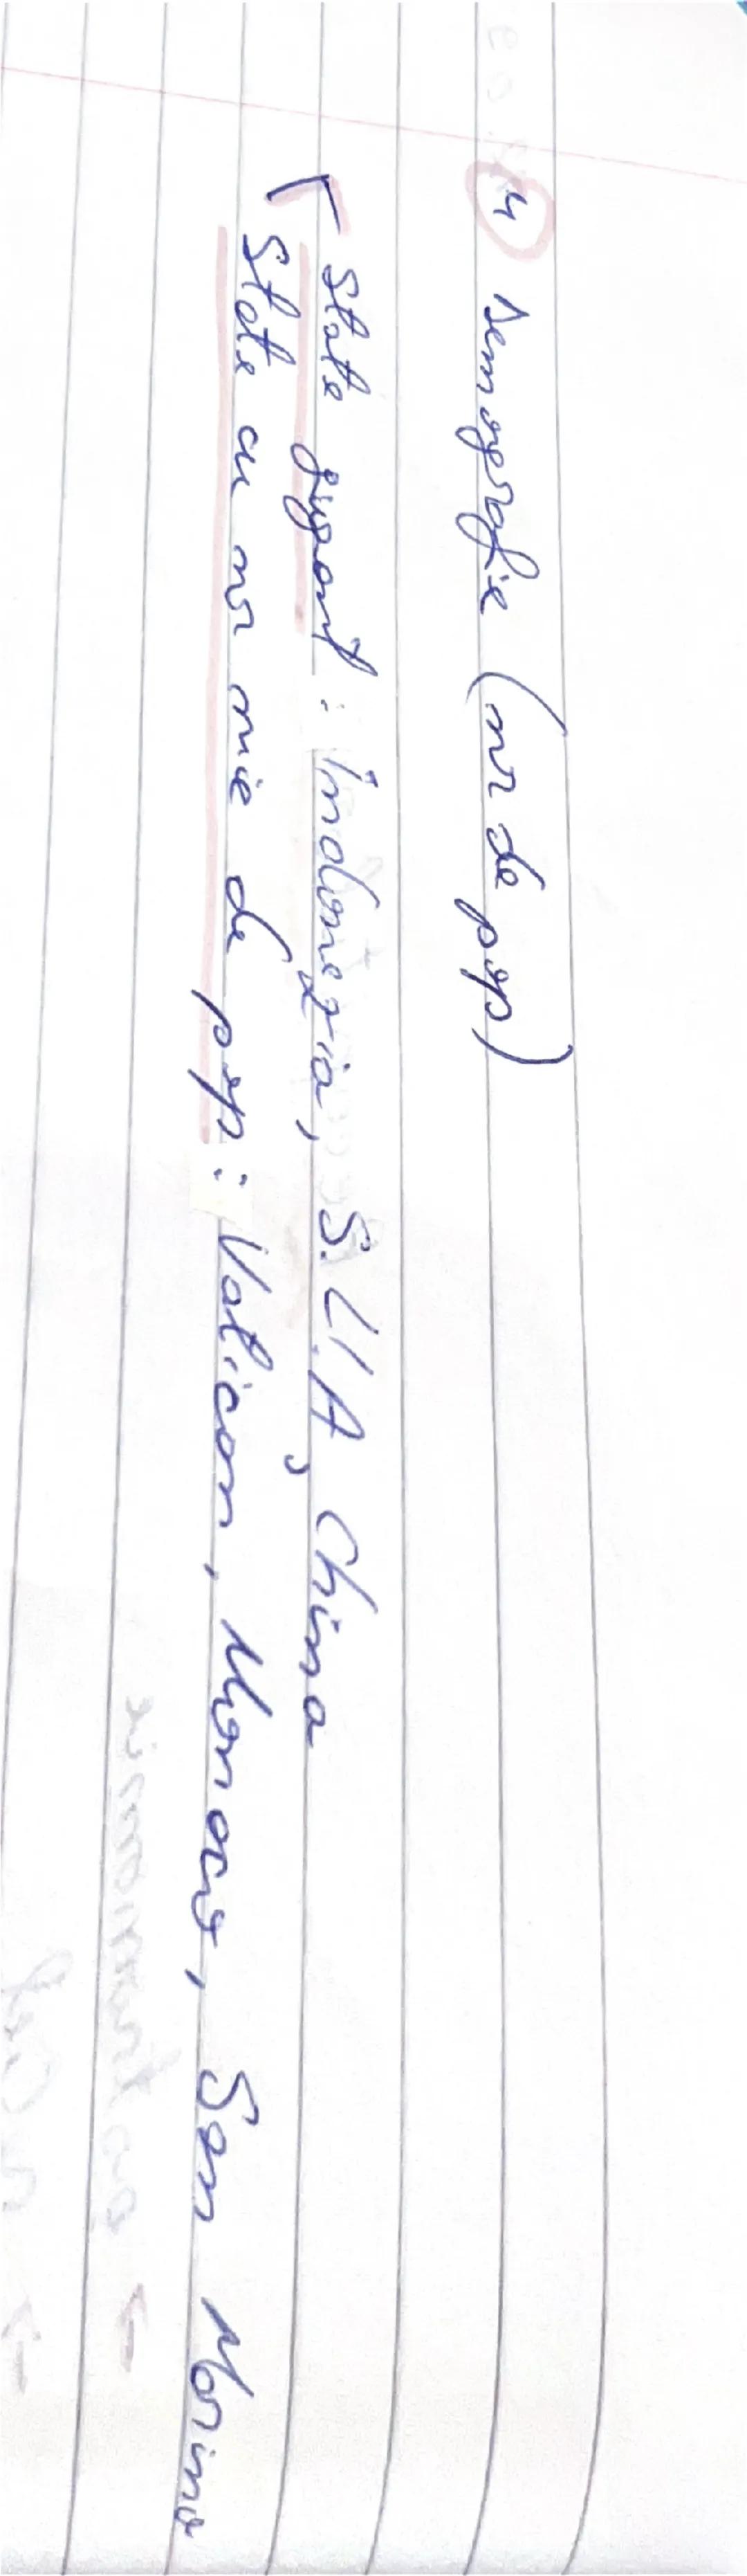 4 Demografie (nr de pop)
State gigant: Indonezia, S.U.A, China
State cu nr mic de pop: Vatican, Monaco, San Marino